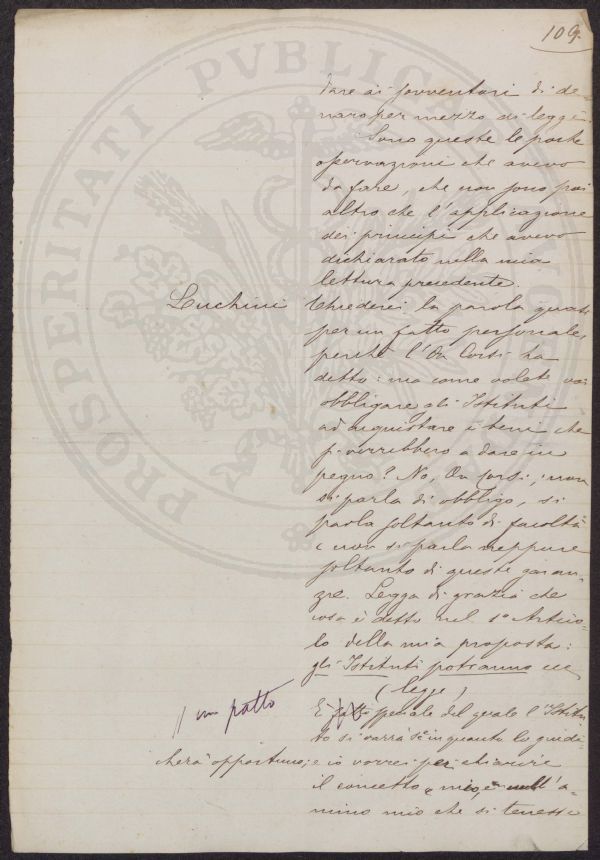 109.
PROSPERITATI PVBLICAE AVGENDAE
dare ai sovventori di de-
naro per mezzo di leggi.
Sono queste le poche
osservazioni che avevo
da fare, che non sono poi
altro che l'applicazione
dei principi che avevo
dichiarato nella mia
lettura precedente.
Luchini Chiederei la parola quasi
per un fatto personale,
perchè l'On Corsi ha
detto: ma come volete voi
obbligare gli Istituti
ad acquistare i beni che
si verrebbero a dare in
pegno? No, On Corsi, non
si parla di obbligo, si
parla soltanto di facoltà
e non si parla neppure
soltanto di queste garan-
zie. Legga di grazia che
cosa è detto nel 1º Artico-
lo della mia proposta:
gli Istituti potranno ecc
(legge)
// un patto
È speciale del quale l'Istitu-
to si varrà se in quanto lo giudi-
cherà opportuno; e io vorrei per chiarire
il concetto mio, e nell'a-
nimo mio che si tenesse